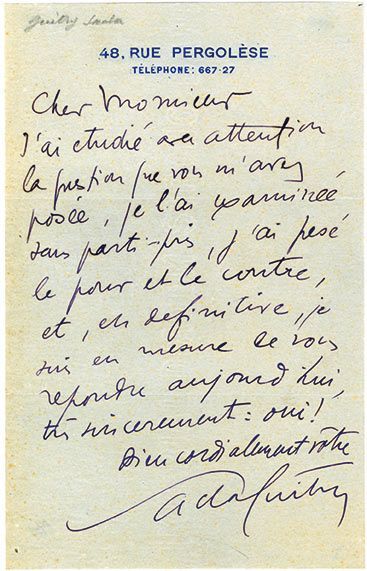 Guitry Sacha
48, RUE PERGOLÈSE
TÉLÉPHONE: 667-27
Cher Monsieur
J'ai etudié avec attention
la question que vous m'avez
posée, je l'ai examinée
sans parti-pris, j'ai pesé
le pour et le contre,
et, en definitive, je
suis en mesure de vous
repondre aujourd'hui,
très sincerement: oui!
Bien cordialement vôtre
Sacha Guitry